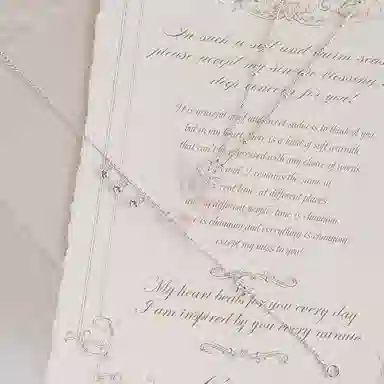 In such a soft and warm season
please accept my sincere blessing and
deep concern for you!
It is graceful grief and sweet sadness to think of you,
but in my heart, there is a kind of soft warmth
that can't be expressed with any choice of words.
It remains the same at
different time, at different places
different people time is changing
is changing and everything is changing
except my miss to you!
My heart beats for you every day
I am inspired by you every minute